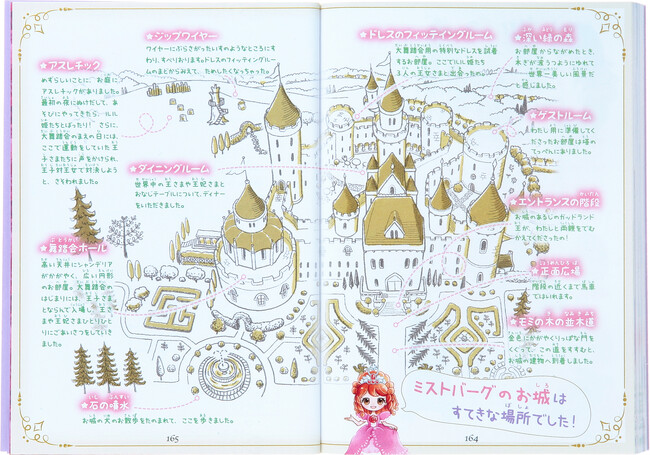 ★ジップワイヤー
ワイヤーにぶらさがったいすのようなところにす
わり、すべりおります。ドレスのフィッティングルー
ムのまどからおえて、ためしたくなっちゃった。
★アスレチック
めずらしいことに、お庭に
アスレチックがありました。
最初の夜にぬけだして、あ
そびにやってきたら、ルル
姫たちとばったり! さらに、
大舞踏会のまえの日には、
ここで運動をしていた王
子さまたちに声をかけられ、
王子対王女で対決しよう
と、さそわれました。
★ダイニングルーム
世界中の王さまや王妃さまと
おなじテーブルについて、ディナー
をいただきました。
★舞踏会ホール
高い天井にシャンデリア
がかがやく、広い円形
のお部屋。大舞踏会の
はじまりには、王子さま
とならんで入場し、王さ
まや王妃さまひとりひと
りにごあいさつをしていき
ました。
★石の噴水
お城の犬のお散歩をたのまれて、ここを歩きました。
165
★ドレスのフィッティングルーム
大舞踏会用の特別なドレスを試着
するお部屋。ここでルル姫たち
3人の王女さまと出会ったの。
★深い緑の森
お部屋からながめたとき、
木ぎが波うつようにゆれて
世界一美しい風景だ
と感じました。
★ゲストルーム
わたし用に準備してく
ださったお部屋は塔の
てっぺんにありました。
★エントランスの階段
お城のあるじのガッドランド
王が、わたしと両親をでむ
かえてくださったの!
★正面広場
階段の近くまで馬車
ではいれます。
★モミの木の並木道
金色にかがやくりっぱな門を
くぐって、この道をすすむと、
お城の建物へ到着しました。
ミストバーグのお城は
すてきな場所でした!
164